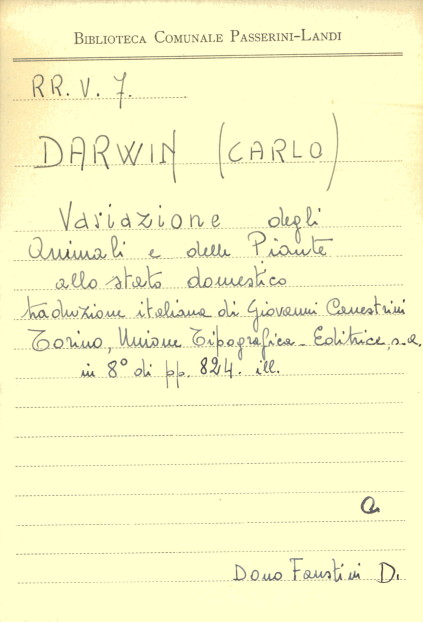 BIBLIOTECA COMUNALE PASSERINI-LANDI
RR. V. 7.
DARWIN (CARLO)
Variazione degli
Animali e delle Piante
allo stato domestico
traduzione italiana di Giovanni Canestrini
Torino, Unione Tipografica-Editrice, s.a.
in 8° di pp. 824. ill.
a
Dono Faustini D.